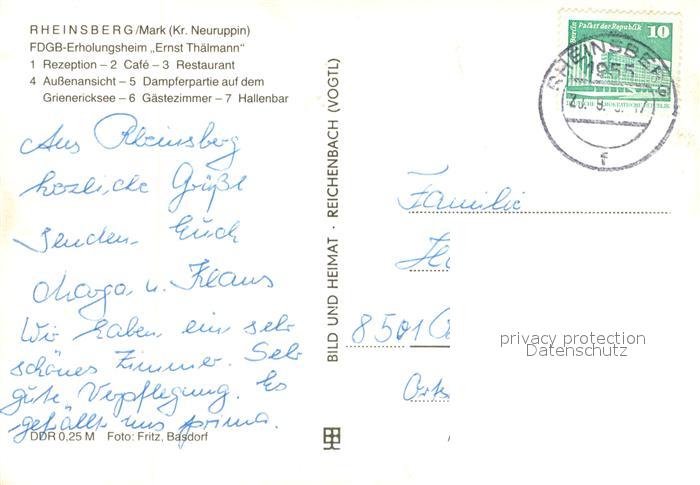 RHEINSBERG/Mark (Kr. Neuruppin)
FDGB-Erholungsheim „Ernst Thälmann"
1 Rezeption – 2 Café – 3 Restaurant
4 Außenansicht – 5 Dampferpartie auf dem
Grienericksee – 6 Gästezimmer – 7 Hallenbar
Aus Rheinsberg
herzliche Grüße
senden Euch
Marga u. Klaus
Wir haben ein sehr
schönes Zimmer. Sehr
gute Verpflegung. Es
gefällt uns prima.
DDR 0,25 M Foto: Fritz, Basdorf
BILD UND HEIMAT · REICHENBACH (VOGTL)
Berlin Palast der Republik
10
RHEINSBERG
1955
f
Familie
8501
privacy protection
Datenschutz